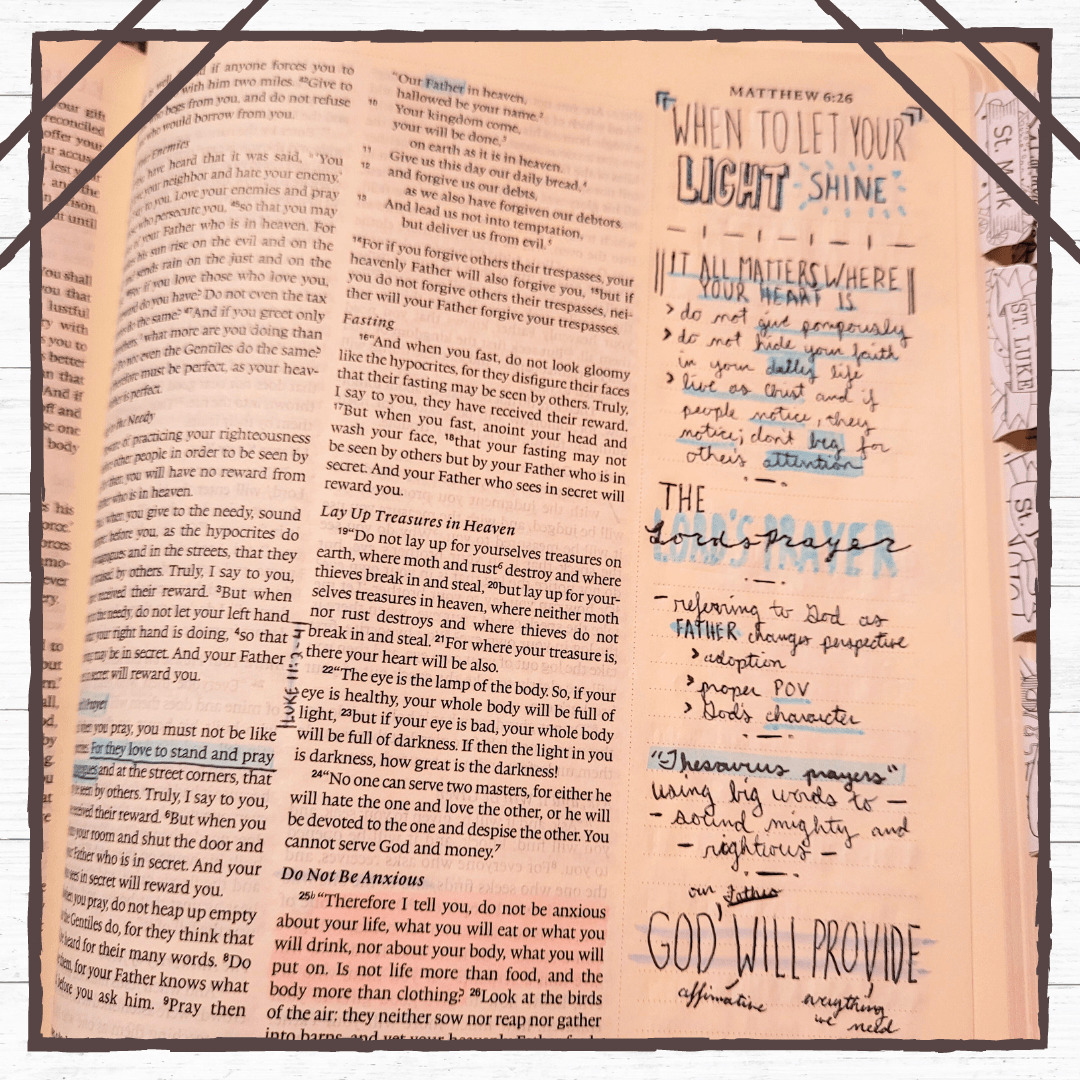 gift
reconciled
offer your
until
shall
that
lustful
with
you to
better
than that
And if
off and
one
body
his
ever
to
if anyone forces you to
with him two miles. 42Give to
begs from you, and do not refuse
would borrow from you.
Enemies
have heard that it was said, "'You
your neighbor and hate your enemy.'
to you, Love your enemies and pray
who persecute you, 45so that you may
of your Father who is in heaven. For
his sun rise on the evil and on the
sends rain on the just and on the
if you love those who love you,
do you have? Do not even the tax
do the same? 47And if you greet only
what more are you doing than
not even the Gentiles do the same?
must be perfect, as your heav-
is perfect.
the Needy
of practicing your righteousness
other people in order to be seen by
then you will have no reward from
who is in heaven.
when you give to the needy, sound
before you, as the hypocrites do
and in the streets, that they
by others. Truly, I say to you,
received their reward. 3But when
needy, do not let your left hand
your right hand is doing, 4so that
may be in secret. And your Father
secret will reward you.
Prayer
when you pray, you must not be like
For they love to stand and pray
and at the street corners, that
seen by others. Truly, I say to you,
received their reward. 6But when you
your room and shut the door and
Father who is in secret. And your
sees in secret will reward you.
you pray, do not heap up empty
Gentiles do, for they think that
heard for their many words. 8Do
them, for your Father knows what
before you ask him. 9Pray then
"Our Father in heaven,
hallowed be your name.2
10 Your kingdom come,
your will be done,3
on earth as it is in heaven.
11 Give us this day our daily bread,4
12 and forgive us our debts,
as we also have forgiven our debtors.
13 And lead us not into temptation,
but deliver us from evil.5
14For if you forgive others their trespasses, your
heavenly Father will also forgive you, 15but if
you do not forgive others their trespasses, nei-
ther will your Father forgive your trespasses.
Fasting
16"And when you fast, do not look gloomy
like the hypocrites, for they disfigure their faces
that their fasting may be seen by others. Truly,
I say to you, they have received their reward.
17But when you fast, anoint your head and
wash your face, 18that your fasting may not
be seen by others but by your Father who is in
secret. And your Father who sees in secret will
reward you.
Lay Up Treasures in Heaven
19"Do not lay up for yourselves treasures on
earth, where moth and rust6 destroy and where
thieves break in and steal, 20but lay up for your-
selves treasures in heaven, where neither moth
nor rust destroys and where thieves do not
break in and steal. 21For where your treasure is,
there your heart will be also.
22"The eye is the lamp of the body. So, if your
eye is healthy, your whole body will be full of
light, 23but if your eye is bad, your whole body
will be full of darkness. If then the light in you
is darkness, how great is the darkness!
24"No one can serve two masters, for either he
will hate the one and love the other, or he will
be devoted to the one and despise the other. You
cannot serve God and money.7
Do Not Be Anxious
25"Therefore I tell you, do not be anxious
about your life, what you will eat or what you
will drink, nor about your body, what you will
put on. Is not life more than food, and the
body more than clothing? 26Look at the birds
of the air: they neither sow nor reap nor gather
into barns, and yet your heavenly Father
LUKE 11:2-4
MATTHEW 6:26
"WHEN TO LET YOUR"
LIGHT SHINE
IT ALL MATTERS WHERE
YOUR HEART IS
> do not give pompously
> do not hide your faith
in your daily life
> live as Christ and if
people notice, they
notice; dont beg for
others attention
THE
LORD'S PRAYER
Lord's Prayer
- referring to God as
FATHER changes perspective
> adoption
> proper POV
> God's character
"Thesaurus prayers"
using big words to -
- sound mighty and
- rightious -
our father
GOD WILL PROVIDE
affirmative
everything
we need
St. Mark
ST. LUKE
St.